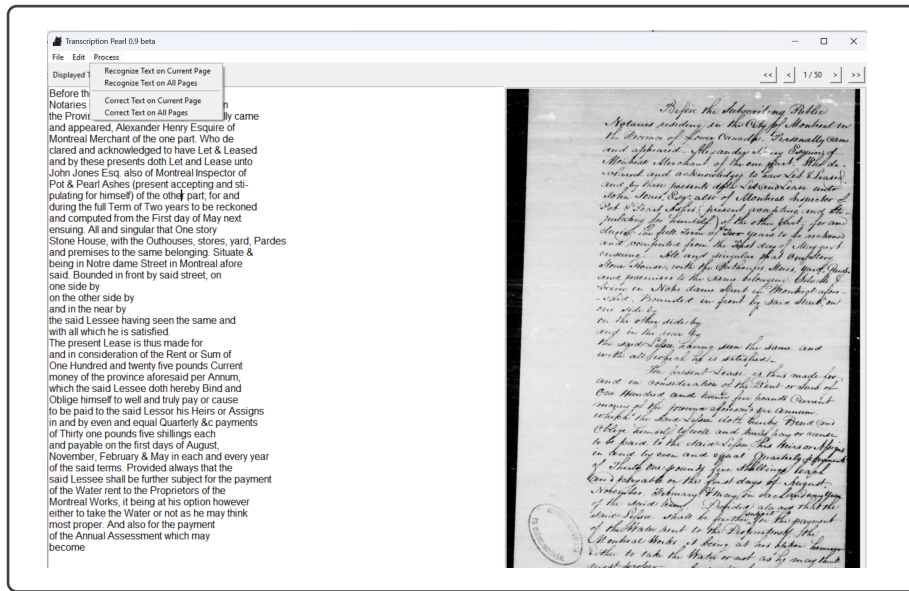 Transcription Pearl 0.9 beta
File Edit Process
Displayed T
<< < 1 / 50 > >>
Recognize Text on Current Page
Recognize Text on All Pages
Correct Text on Current Page
Correct Text on All Pages
Before th
Notaries n
the Provin lly came
and appeared, Alexander Henry Esquire of
Montreal Merchant of the one part. Who de
clared and acknowledged to have Let & Leased
and by these presents doth Let and Lease unto
John Jones Esq. also of Montreal Inspector of
Pot & Pearl Ashes (present accepting and sti-
pulating for himself) of the other part; for and
during the full Term of Two years to be reckoned
and computed from the First day of May next
ensuing. All and singular that One story
Stone House, with the Outhouses, stores, yard, Pardes
and premises to the same belonging. Situate &
being in Notre dame Street in Montreal afore
said. Bounded in front by said street, on
one side by
on the other side by
and in the near by
the said Lessee having seen the same and
with all which he is satisfied.
The present Lease is thus made for
and in consideration of the Rent or Sum of
One Hundred and twenty five pounds Current
money of the province aforesaid per Annum,
which the said Lessee doth hereby Bind and
Oblige himself to well and truly pay or cause
to be paid to the said Lessor his Heirs or Assigns
in and by even and equal Quarterly &c payments
of Thirty one pounds five shillings each
and payable on the first days of August,
November, February & May in each and every year
of the said terms. Provided always that the
said Lessee shall be further subject for the payment
of the Water rent to the Proprietors of the
Montreal Works, it being at his option however
either to take the Water or not as he may think
most proper. And also for the payment
of the Annual Assessment which may
become
Before the Subscribing Public
Notaries residing in the City of Montreal in
the Province of Lower Canada Personally came
and appeared Alexander Henry Esquire of
Montreal Merchant of the one part. Who de-
clared and acknowledged to have Let & Leased
and by these presents doth Let and Lease unto
John Jones Esqr. also of Montreal Inspector of
Pot & Pearl Ashes (present accepting and sti-
pulating for himself) of the other Part, for and
during the full Term of Two years to be reckoned
and computed from the First day of May next
ensuing. All and singular that One story
Stone House, with the Outhouses Stores, yard,
and premises to the same belonging Situate &
being in Notre dame Street in Montreal afore-
-said. Bounded in front by said Street, on
one side by
on the other side by
and in the rear by
the said Lessee having seen the same and
with all which he is satisfied.
The present Lease is thus made for
and in consideration of the Rent or Sum of
One Hundred and twenty five pounds Current
money of the province aforesaid per Annum,
which the said Lessee doth hereby Bind and
Oblige himself to well and truly pay or cause
to be paid to the said Lessor his Heirs or Assigns
in and by even and equal Quarterly payments
of Thirty one pounds five shillings each
and payable on the first days of August
November, February & May in each and every year
of the said term. Provided always that the
said Lessee shall be further subject for the payment
of the Water rent to the Proprietors of the
Montreal Works it being at his option however
either to take the Water or not as he may think
most proper